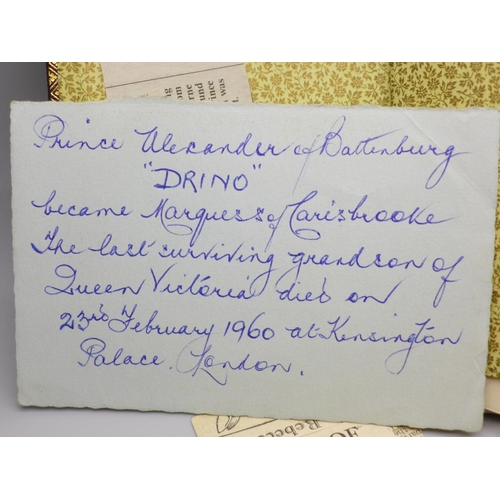 ng
om
rne
und
ince
was
t.
Prince Alexander of Battenburg
"DRINO"
became Marquess of Carisbrooke
The last surviving grandson of
Queen Victoria died on
23rd February 1960 at Kensington
Palace. London.